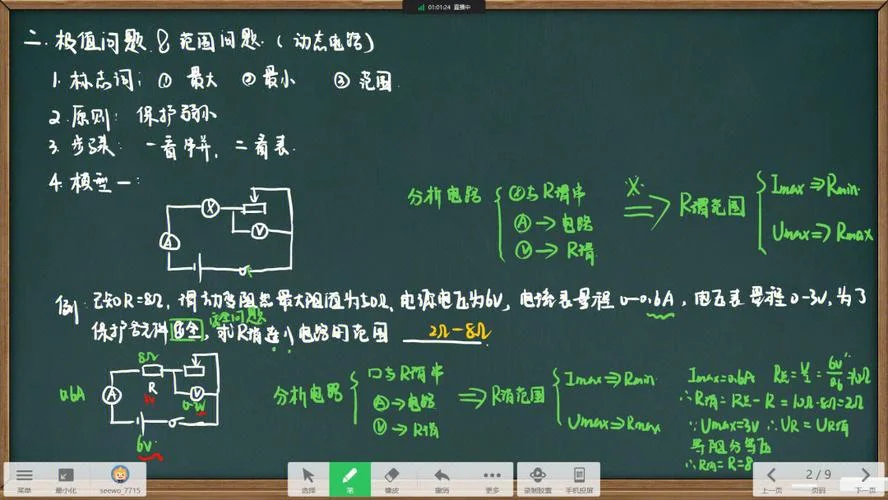 01:01:24 直播中
二. 极值问题 & 范围问题.(动态电路)
1. 标志词: ① 最大 ② 最小 ③ 范围
2. 原则: 保护弱小
3. 步骤: 一看串并, 二看表.
4. 模型一:
X
A
V
分析电路
⊗与R滑串
Ⓐ→电路
Ⓥ→R滑
X.
⇒ R滑范围
Imax⇒Rmin.
Umax⇒Rmax
例. 已知R=8Ω, 滑动变阻器最大阻值为50Ω, 电源电压为6V, 电流表量程0-0.6A, 电压表量程0-3V, 为了
安全问题
保护各元件安全, 求R滑连入电路的范围 2Ω-8Ω
8Ω
0.6A
A
R
3V
V
0-3V
6V
分析电路
口与R滑串
Ⓐ→电路
Ⓥ→R滑
⇒ R滑范围
Imax⇒Rmin
Umax⇒Rmax
Imax=0.6A R总=U/I=6V/0.6=10Ω
∴R滑=R总-R=10Ω-8Ω=2Ω
∵Umax=3V ∴UR=UR滑
等阻分等压
∴R滑=R=8
菜单
最小化
seewo_7715
选择
笔
橡皮
撤消
更多
录制胶囊
手机投屏
上一页
2 / 9
页码
下一页